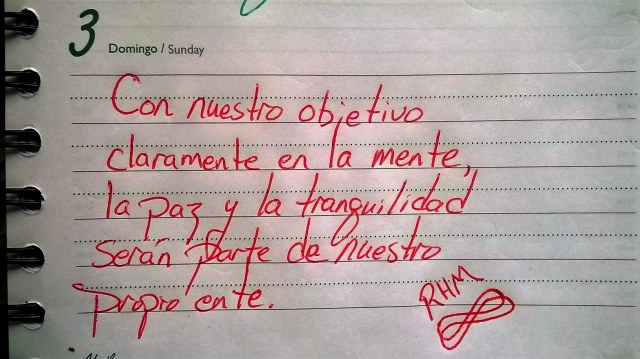 3 Domingo / Sunday
Con nuestro objetivo
claramente en la mente,
la paz y la tranquilidad
serán parte de nuestro
propio ente.
RHM